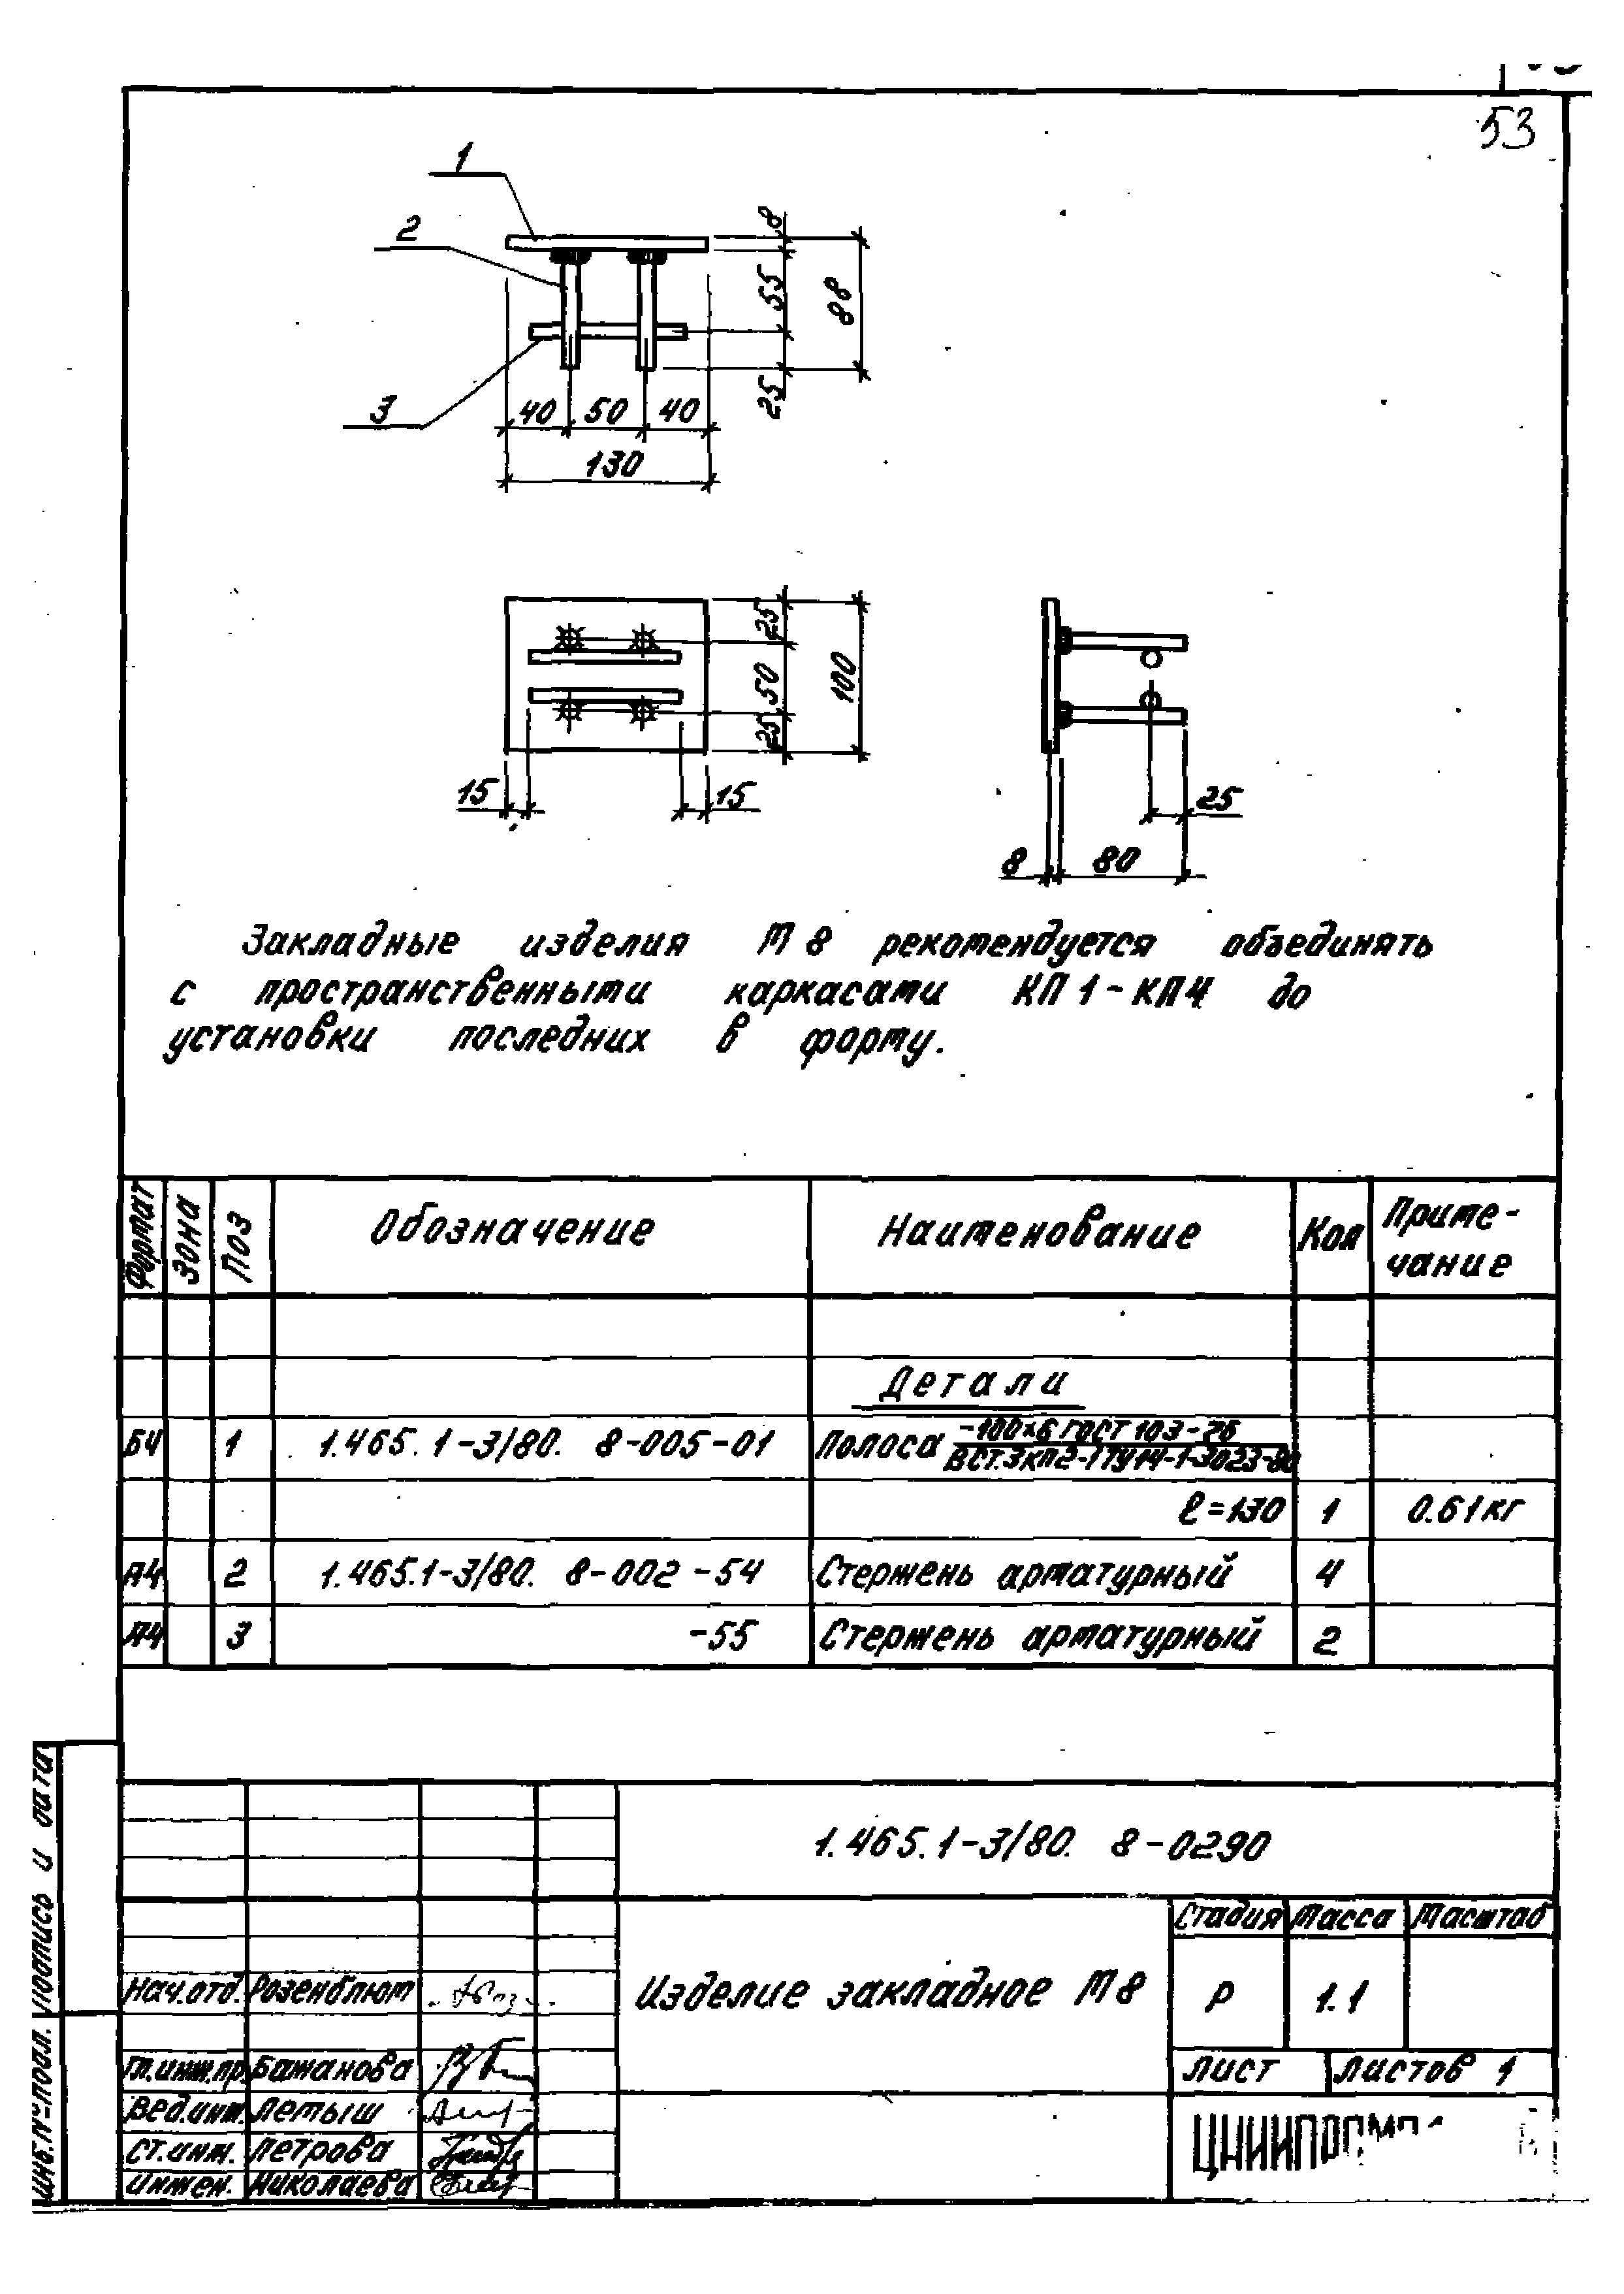 53
1
2
3
8
55
88
25
40 50 40
130
25
50
100
25
15
15
25
8
80
Закладные изделия М 8 рекомендуется объединять
с пространственными каркасами КП 1-КП4 до
установки последних в форму.
Формат Зона Поз Обозначение Наименование Кол Приме-
чание
Детали
БЧ 1 1.465.1-3/80. 8-005-01 Полоса -100×6 ГОСТ 103-76
ВСт.3кп2-1ТУ14-1-3023-80
ℓ=130 1 0.61кг
А4 2 1.465.1-3/80. 8-002-54 Стержень арматурный 4
А4 3 -55 Стержень арматурный 2
1.465.1-3/80. 8-0290
Изделие закладное М8
Стадия Масса Масштаб
Р 1.1
Лист Листов 1
Нач.отд. Розенблюм
Гл.инж.пр. Бажанова
Вед.инж. Летыш
Ст.инж. Петрова
Инжен. Николаева
Инв.№подл. Подпись и дата